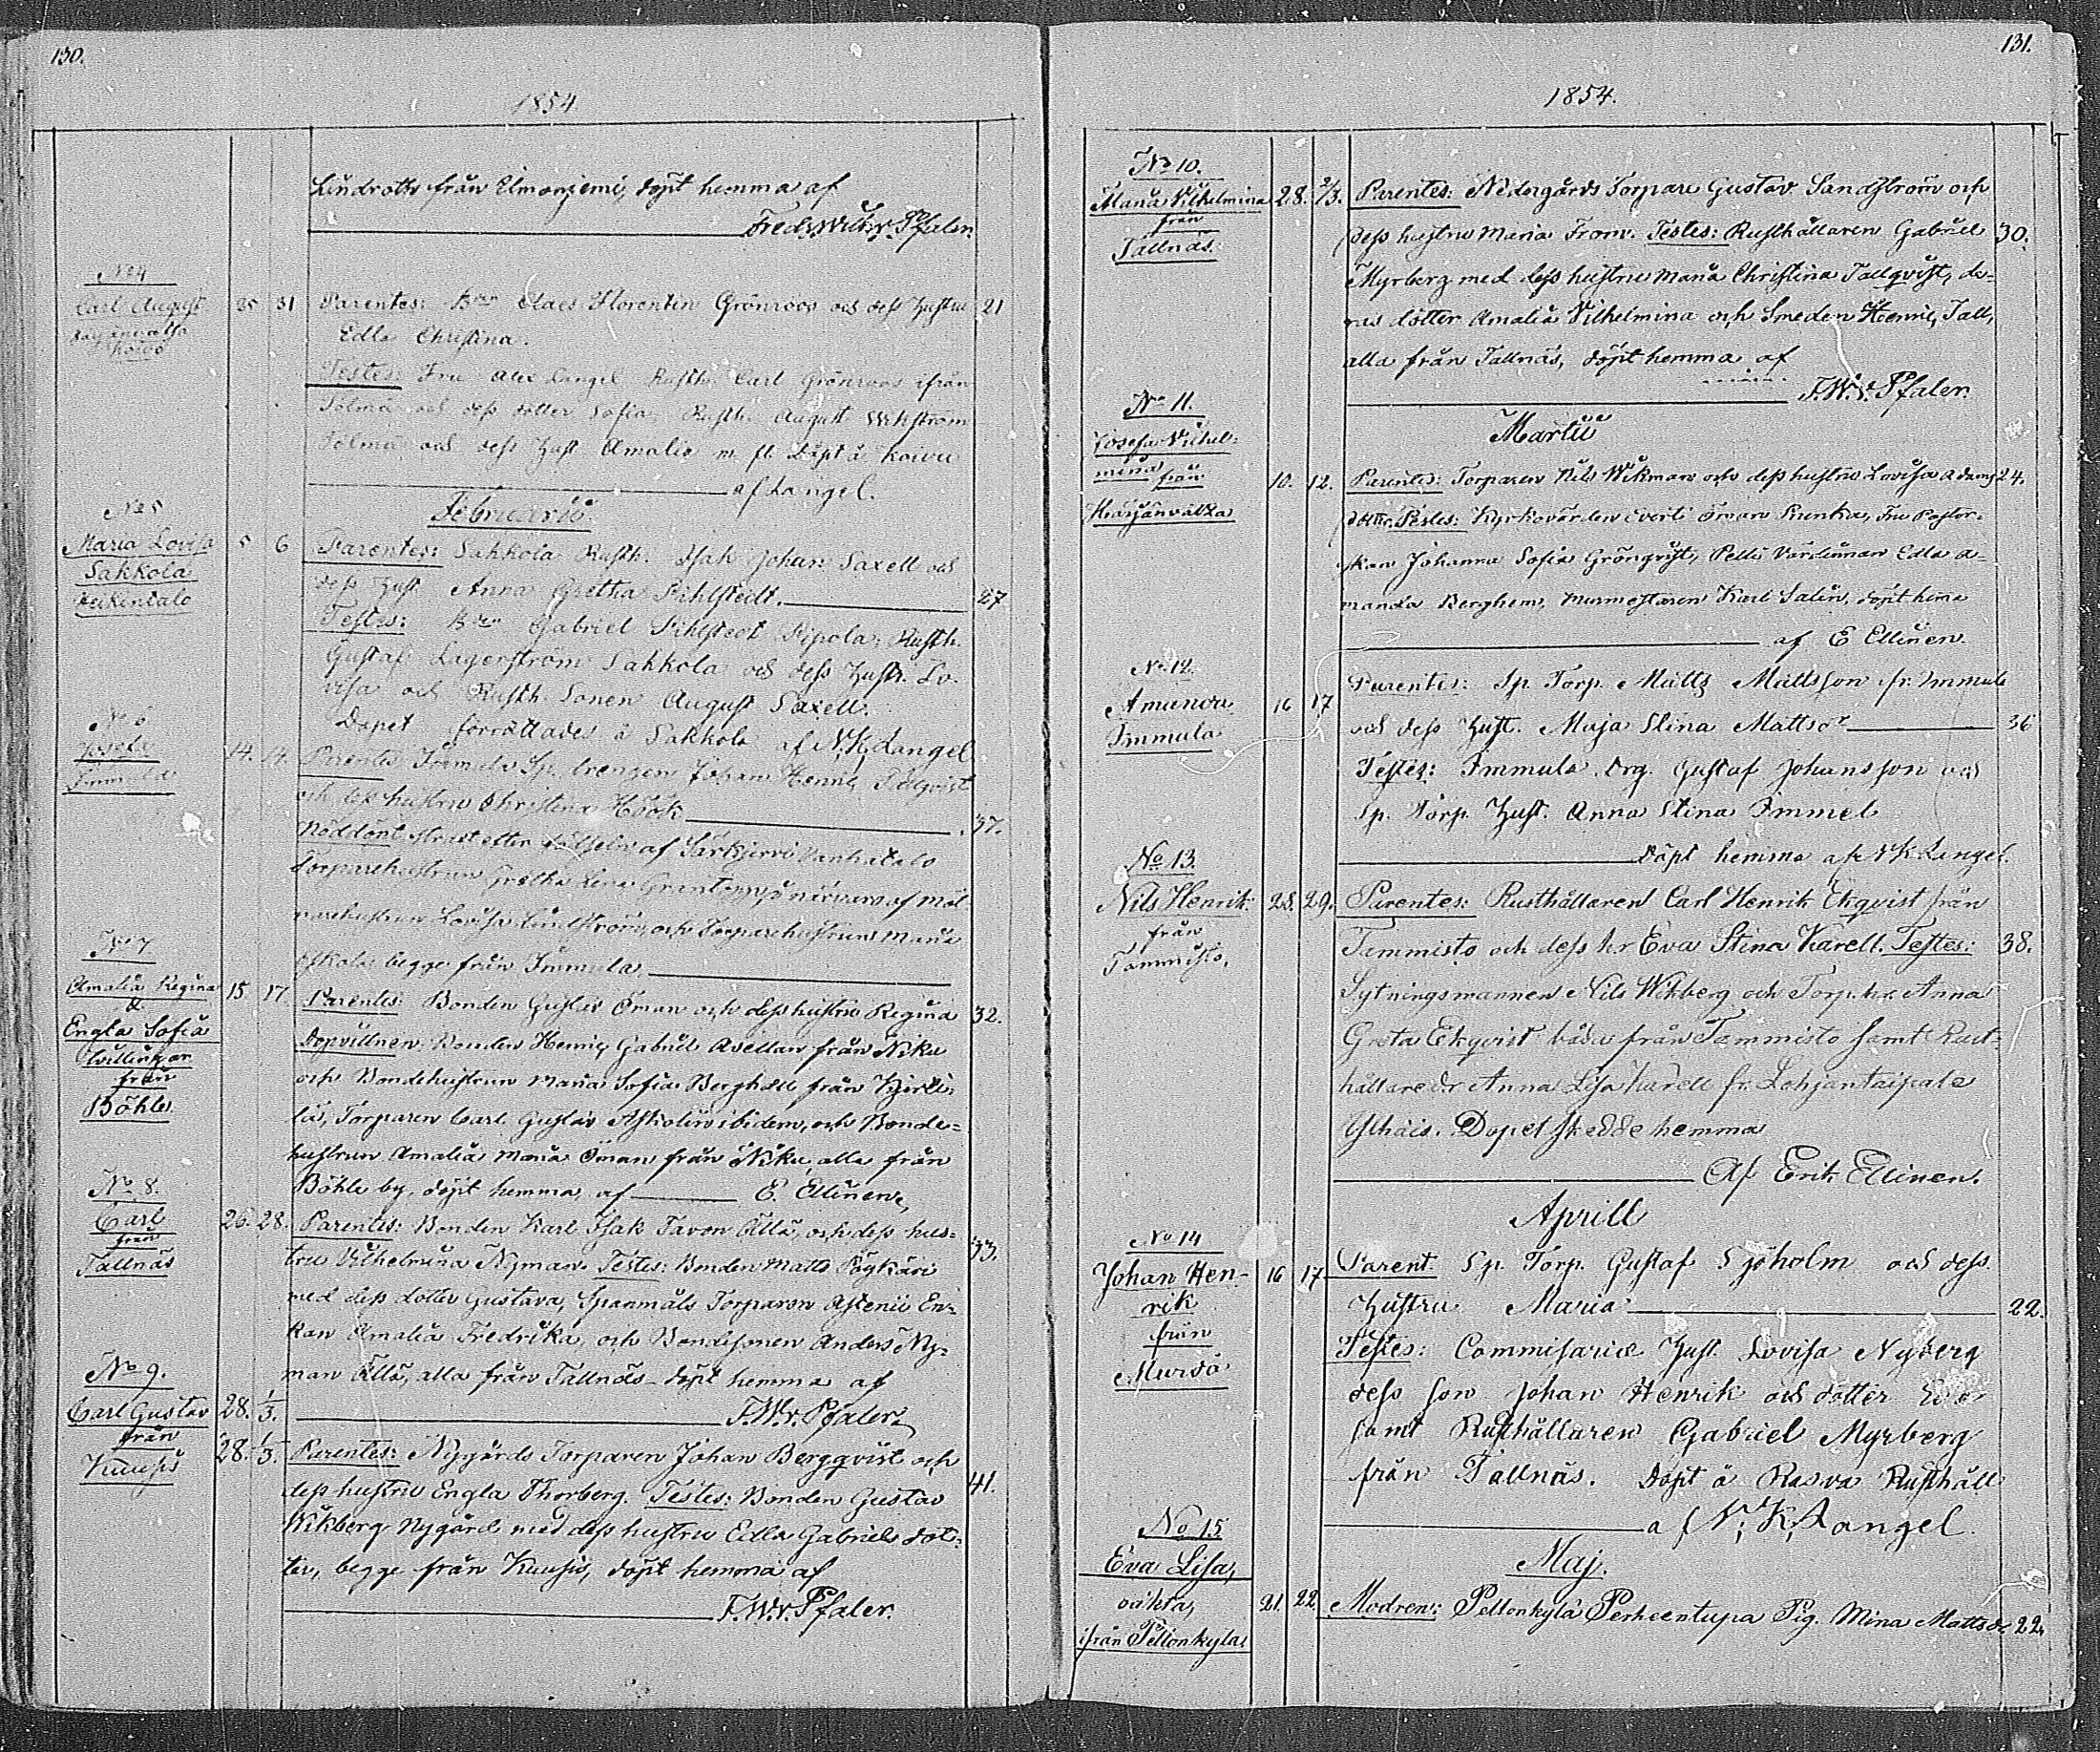 130.
1854
Lindroth från Elmonjemi, döpt hemma af
Fredr. Wilh. v. Pfaler.
No 4
Carl August
35 31 Parentes: Claes Florentin Grönroos och dess hustru 21
Edla Christina.
Testes: Fru Langel Rusth. Carl Grönroos ifrån
Tolmä och dess dotter Sofia, Rusth. August Wikström
Tolmä och dess hust Amalia m. fl. Döpt å Koivu
af Langel.
Februarii
No 5
Maria Lovisa
Sakkola
Heikintalo
5 6 Parentes: Sakkola Rusth. Isak Johan Saxell och
dess hust Anna Gretha Fihlstedt. 27
Testes: Gabriel Fihlstedt Kipola, Rusth.
Gustaf Lagerström Sakkola och dess hustr. Lo-
visa och Rusth. Sonen August Saxell.
Dopet förrättades å Sakkola af N. K. Langel
No 6
Immula
14. 14. Parentes Immula Sp. drengen Johan Henric
och dess hustru Christina Höök 37.
Nöddöpt strax efter födseln af Särkjervi Vanhatalo
Torparehustrun Gretha Lena i närvaro af Möl-
narehustrun Lovisa Lindström, och Torparehustrun Maria
begge från Immula
No 7
Amalia Regina
&
Engla Sofia
tvillingar
från
Böhle
15 17 Parentes: Bonden Gustav Öman och dess hustru Regina 32.
Dopvittnen: Bonden Henric Gabriel Avellan från Niku
och Bondehustrun Maria Sofia Berghäll från
lä, Torparen Carl Gustav Askolin ibidem, och Bonde-
hustrun Amalia Maria Öman från Niku, alla från
Böhle by, döpt hemma af E. Ellinen.
No 8.
Carl
från
Tallnäs
26. 28. Parentes: Bonden Karl Isak Tavon Ällä, och dess hus-
tru Vilhelmina Nyman. Testes: Bonden Matts 33.
med dess dotter Gustava, Spanmåls Torparen En-
kan Amalia Fredrika, och Bondesonen Anders Ny-
man Ällä, alla från Tallnäs döpt hemma af
F. W. v. Pfaler.
No 9.
Carl Gustav
från
Kuusis
28. 1/3.
28. 1/3. Parentes: Nygårds Torparen Johan Bergqvist och
dess hustru Engla Thorberg. Testes: Bonden Gustav 41.
Wikberg Nygård med dess hustru Edla Gabriels dot-
ter, begge från Kuusis, döpt hemma af
F. W. v. Pfaler.
131.
1854.
No 10.
Maria Vilhelmina
från
Tallnäs.
28. 2/3. Parentes: Nedergårds Torpare Gustav Sandström och
dess hustru Maria From. Testes: Rusthållaren Gabriel 30.
Myrberg med dess hustru Maria Christina Tallqvist, de-
ras dotter Amalia Vilhelmina och Smeden Henric Tall,
alla från Tallnäs, döpt hemma af
F. W. v. Pfaler.
Martii
No 11.
Josefa Vilhel-
mina från
Harjanvatsa
10. 12. Parentes: Torparen Nils Wikman och dess hustru Lovisa Adams 24.
dotter. Testes: Kyrkovärden Evert Öman Fru Pastor-
skan Johanna Sofia Grönqvist, Pelli Värdinnan Edla A-
manda Berghem, Murmestaren Karl Salin, döpt hema
af E Ellinen.
No 12.
Amanda
Immula
16 17 Parentes: Sp. Torp. Matts Mattsson fr. Immula
och dess hust. Maja Stina Mattsdr 36
Testes: Immula Drg. Gustaf Johansson och
Sp. Torp. hust. Anna Stina Immel
Döpt hemma af N K Langel.
No 13.
Nils Henrik
från
Tammisto.
28. 29. Parentes: Rusthållaren Carl Henrik Ekqvist från
Tammisto och dess hr Eva Stina Karell. Testes: 38.
Sytningsmannen Nils Wikberg och Torp. hr. Anna
Greta Ekqvist båda från Tammisto samt Rust-
hållaredr Anna Lisa Karell fr. Lohjantaipale
Dopet skedde hemma
Af Erik Ellinen.
Aprill
No 14
Johan Hen-
rik
från
Murdo
16 17 Parent. Sp. Torp. Gustaf Sjöholm och dess
hustru Maria 22.
Testes: Commisarie Hust Lovisa Nyberg
dess son Johan Henrik och dotter Eva
samt Rusthållaren Gabriel Myrberg
från Tallnäs. Döpt å Rasva Rusthåll
af N. K. Langel.
Maj.
No 15
Eva Lisa,
oäkta,
ifrån Pellonkylä
21. 22. Modren: Pellonkylä Perheentupa Pig. Mina Mattsdr 22.